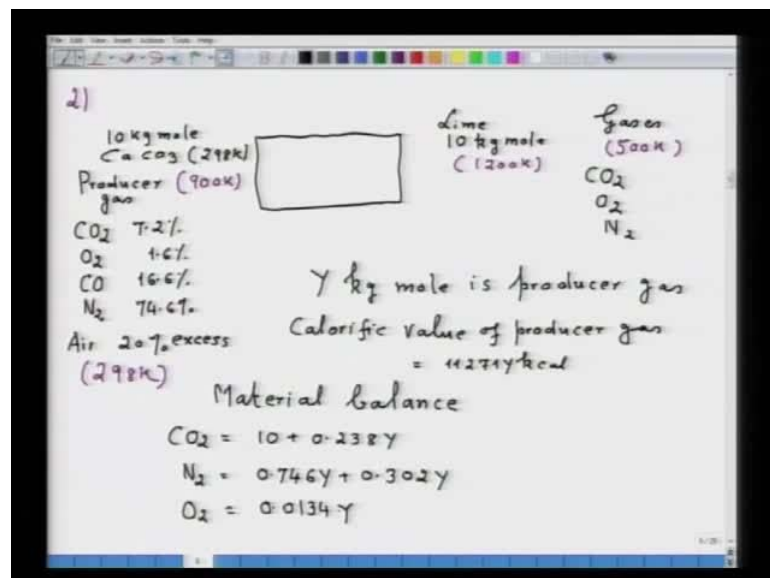 2)
10 kg mole
CaCO3 (298K)
Producer (900K)
gas
CO2 7.2%
O2 1.6%
CO 16.6%
N2 74.6%
Air 20% excess
(298K)
Lime
10 kg mole
(1200K)
Gases
(500K)
CO2
O2
N2
Y kg mole is producer gas
Calorific value of producer gas
= 11271Y kcal
Material balance
CO2 = 10 + 0.238Y
N2 = 0.746Y + 0.302Y
O2 = 0.0134Y